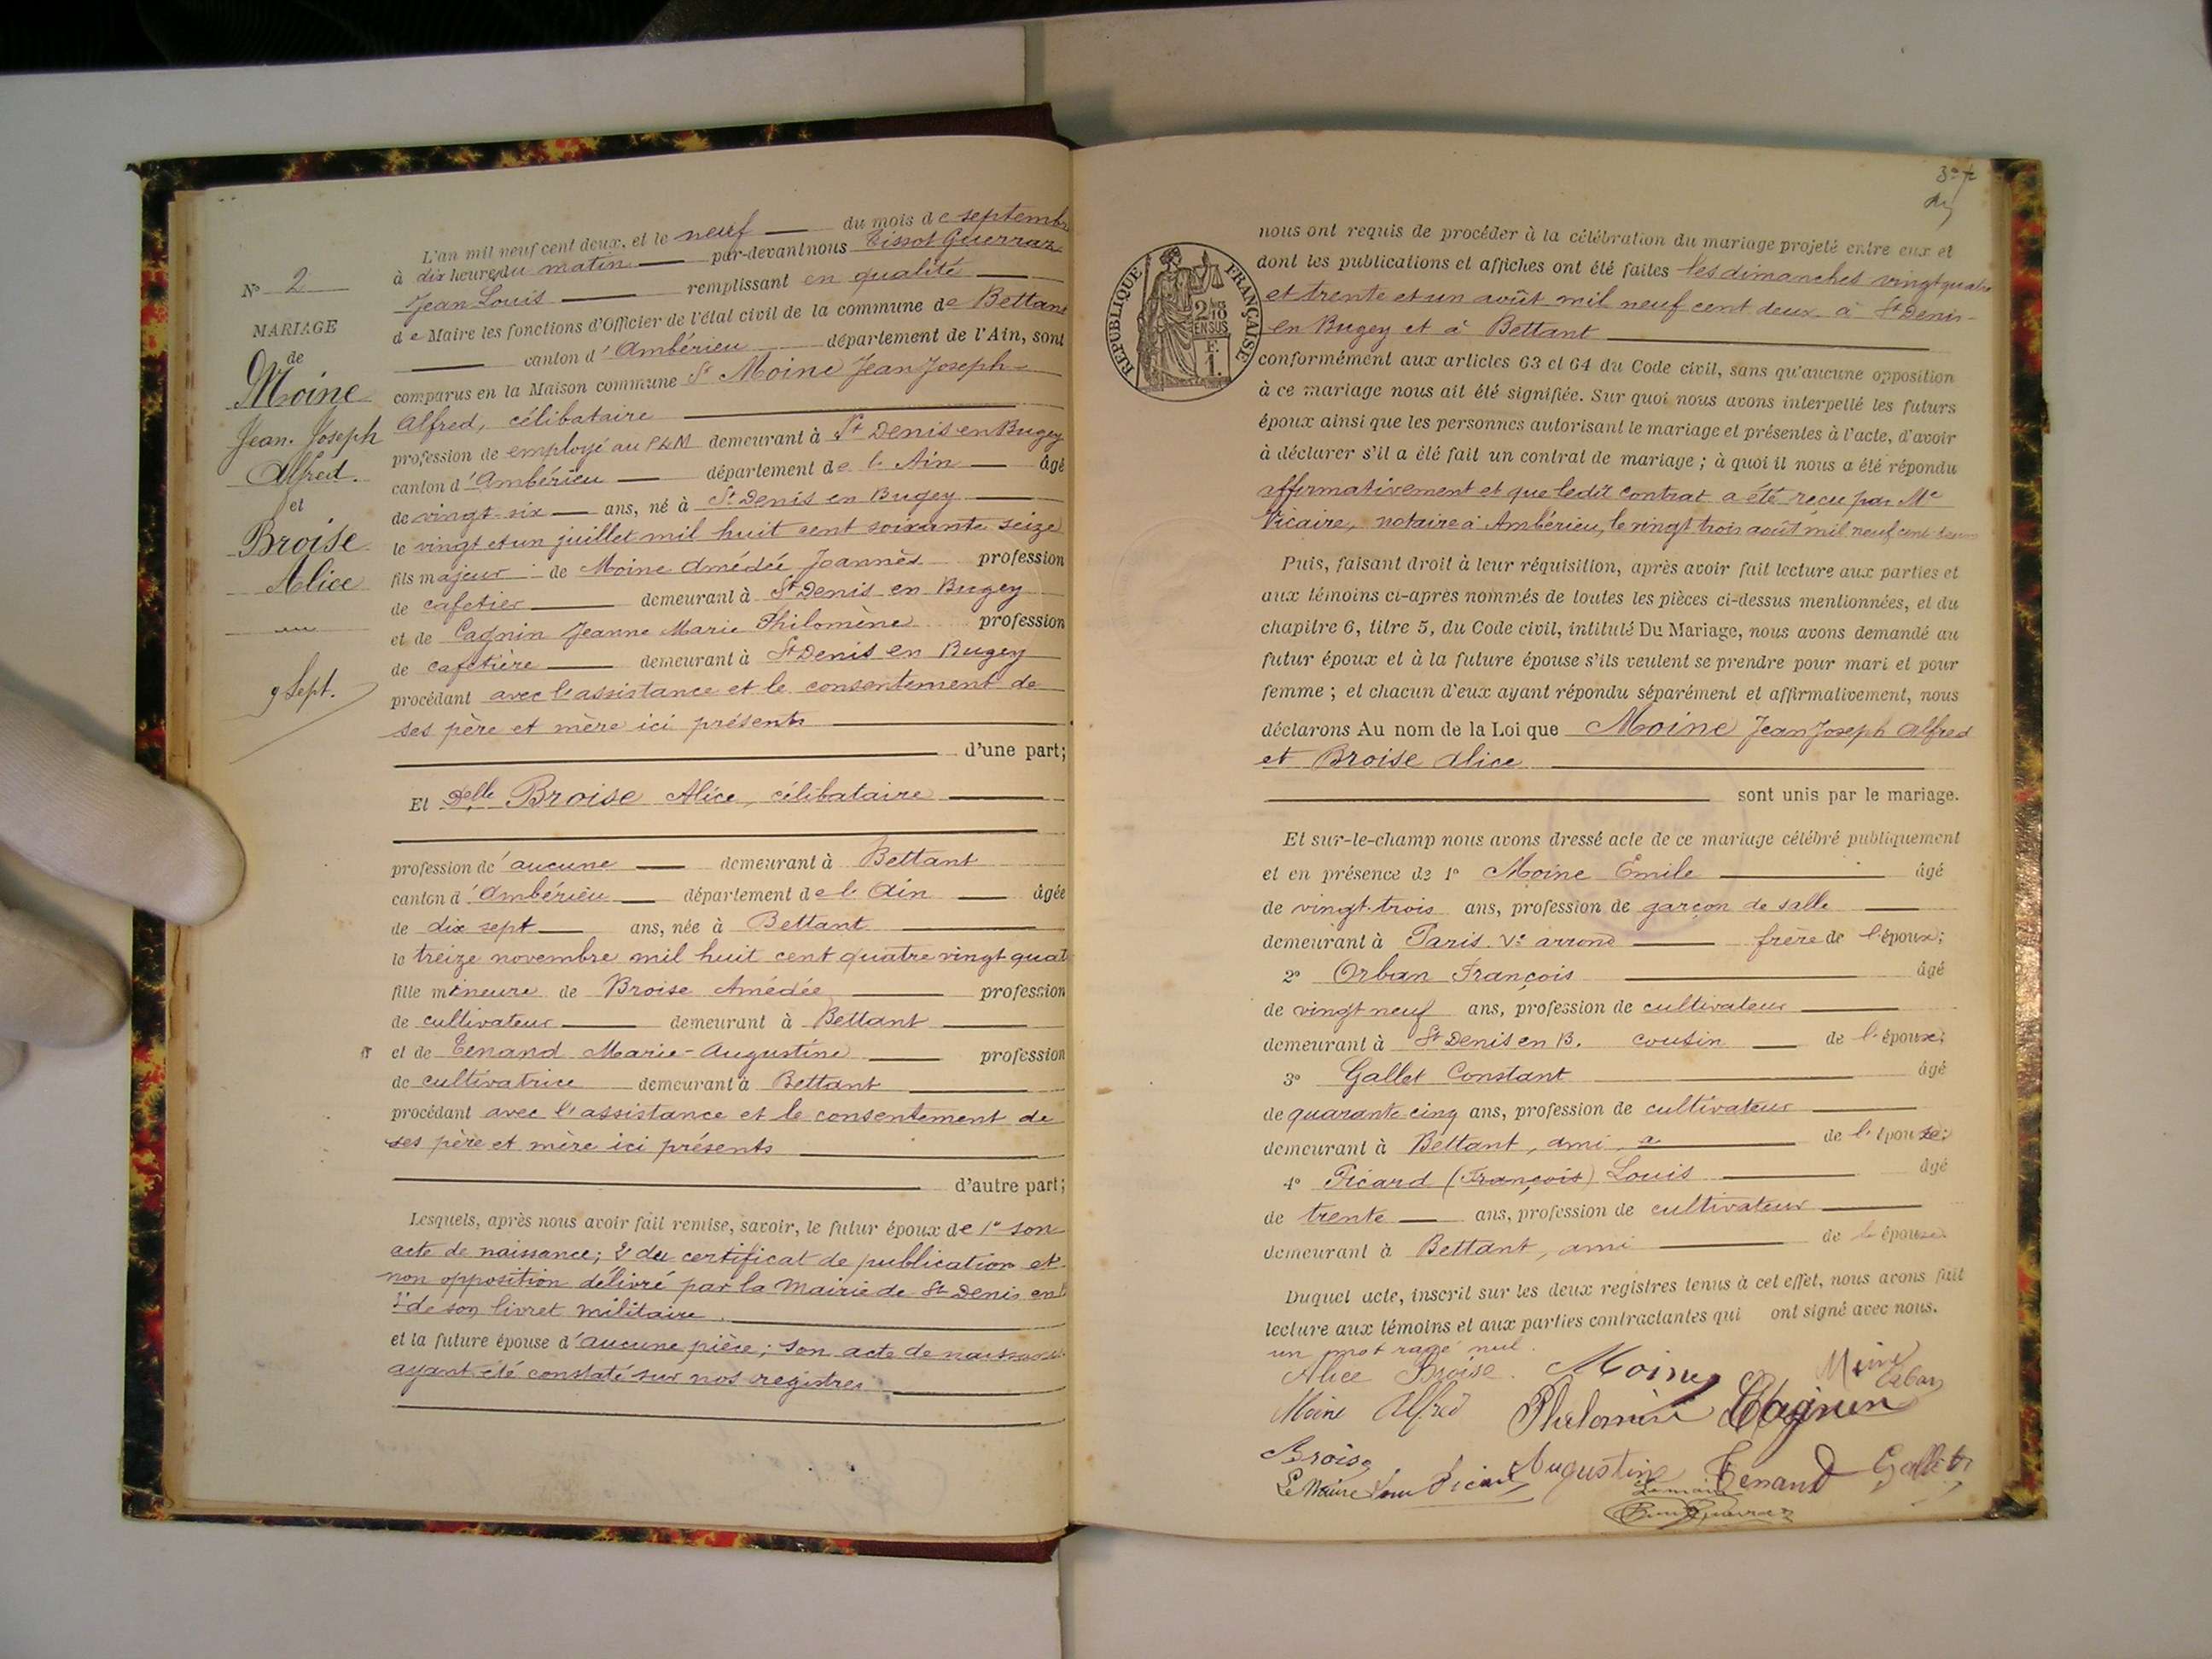 N° 2
MARIAGE
de
Moine
Jean Joseph
Alfred.
et
Broise
Alice
9 Sept.
L'an mil neuf cent deux, et le neuf du mois de septembre
à dix heures du matin par-devant nous Tissot Guerraz
Jean Louis remplissant en qualité
de Maire les fonctions d'Officier de l'état civil de la commune de Bettant
canton d'Ambérieu département de l'Ain, sont
comparus en la Maison commune Sr Moine Jean Joseph-
Alfred, célibataire
profession de employé au PLM demeurant à St Denis en Bugey
canton d'Ambérieu département de l'Ain âgé
de vingt-six ans, né à St Denis en Bugey
le vingt et un juillet mil huit cent soixante seize
fils majeur de Moine Amédée Joannès profession
de cafetier demeurant à St Denis en Bugey
et de Cagnin Jeanne Marie Philomène profession
de cafetière demeurant à St Denis en Bugey
procédant avec l'assistance et le consentement de
ses père et mère ici présents
d'une part;
Et Delle Broise Alice, célibataire
profession de aucune demeurant à Bettant
canton d'Ambérieu département de l'Ain âgée
de dix sept ans, née à Bettant
le treize novembre mil huit cent quatre vingt quat
fille mineure de Broise Amédée profession
de cultivateur demeurant à Bettant
et de Tenand Marie-Augustine profession
de cultivatrice demeurant à Bettant
procédant avec l'assistance et le consentement de
ses père et mère ici présents
d'autre part;
Lesquels, après nous avoir fait remise, savoir, le futur époux de 1° son
acte de naissance; 2° du certificat de publication et
non opposition délivré par la Mairie de St Denis en B
3° de son livret militaire
et la future épouse d'aucune pièce; son acte de naissance
ayant été constaté sur nos registres
RÉPUBLIQUE FRANÇAISE
2/10 EN SUS
F.
1.
nous ont requis de procéder à la célébration du mariage projeté entre eux et
dont les publications et affiches ont été faites les dimanches vingt quatre
et trente et un août mil neuf cent deux à St Denis-
en Bugey et à Bettant
conformément aux articles 63 et 64 du Code civil, sans qu'aucune opposition
à ce mariage nous ait été signifiée. Sur quoi nous avons interpellé les futurs
époux ainsi que les personnes autorisant le mariage et présentes à l'acte, d'avoir
à déclarer s'il a été fait un contrat de mariage; à quoi il nous a été répondu
affirmativement et que ledit contrat a été reçu par Me
Vicaire, notaire à Ambérieu, le vingt trois août mil neuf cent deux
Puis, faisant droit à leur réquisition, après avoir fait lecture aux parties et
aux témoins ci-après nommés de toutes les pièces ci-dessus mentionnées, et du
chapitre 6, titre 5, du Code civil, intitulé Du Mariage, nous avons demandé au
futur époux et à la future épouse s'ils veulent se prendre pour mari et pour
femme; et chacun d'eux ayant répondu séparément et affirmativement, nous
déclarons Au nom de la Loi que Moine Jean Joseph Alfred
et Broise Alice
sont unis par le mariage.
Et sur-le-champ nous avons dressé acte de ce mariage célébré publiquement
et en présence de 1° Moine Emile âgé
de vingt-trois ans, profession de garçon de salle
demeurant à Paris Ve arrond frère de l'époux;
2° Orban François âgé
de vingt neuf ans, profession de cultivateur
demeurant à St Denis en B. cousin de l'époux;
3° Gallet Constant âgé
de quarante cinq ans, profession de cultivateur
demeurant à Bettant, ami de l'épouse;
4° Picard (François) Louis âgé
de trente ans, profession de cultivateur
demeurant à Bettant, ami de l'épouse.
Duquel acte, inscrit sur les deux registres tenus à cet effet, nous avons fait
lecture aux témoins et aux parties contractantes qui ont signé avec nous.
un mot rayé nul.
Alice Broise. Moine
Orban
Moine Alfred Philomène Cagnin
Broise Augustine Tenand Gallet
Louis Picard
Le maire